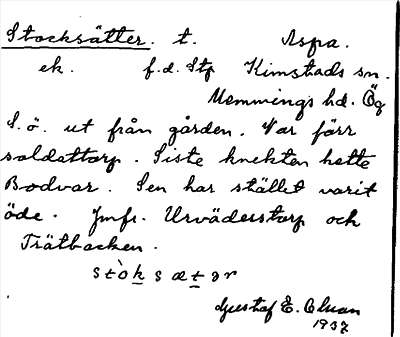 Stocksätter. t. Aspa.
ek. f.d. Stp Kimstads sn.
Memmings hd. Ög
S.ö. ut från gården. Var förr
soldattorp. Siste knekten hette
Bodvar. Sen har stället varit
öde. Jmfr. Urväderstorp och
Trätbacken.
stòksætər
Gustaf E.
1937